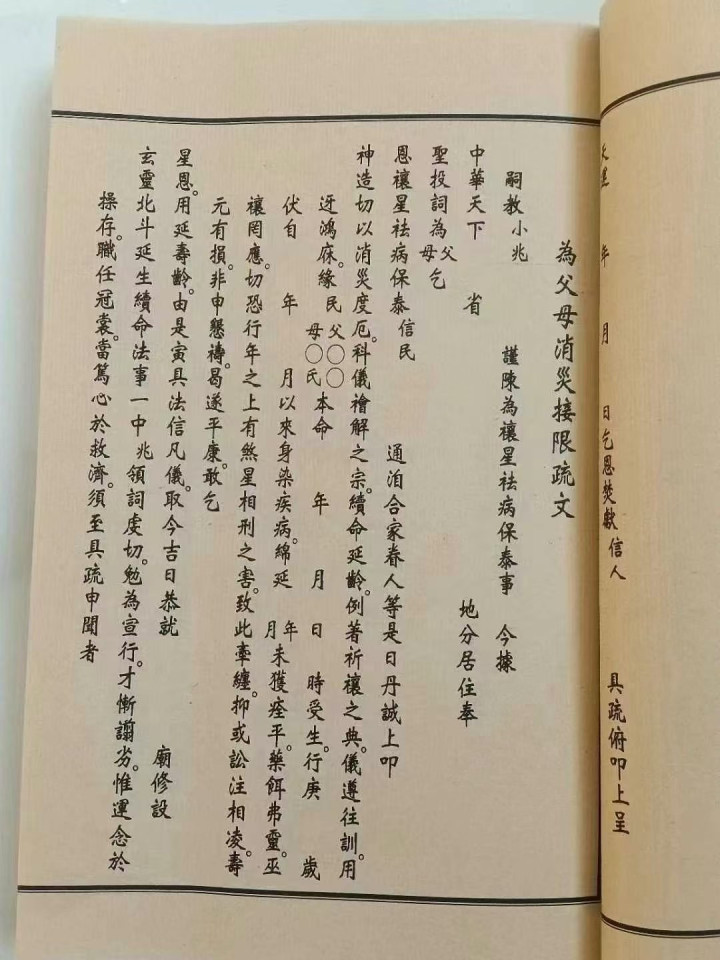 天運　年　月　日乞恩焚獻信人　具疏俯叩上呈
為父母消災接限疏文
嗣教小兆　謹陳為禳星祛病保泰事　今據
中華天下　省　地分居住奉
聖投詞為父母乞
恩禳星祛病保泰信民　通洎合家眷人等是日丹誠上叩
神造切以消災度厄。科儀禬解之宗。續命延齡。例著祈禳之典。儀遵往訓。用
迓鴻庥。緣民父〇〇母〇氏本命　年　月　日　時受生。行庚　歲
伏自　年　月以來身染疾病。綿延　年月未獲痊平。藥餌弗靈。巫
禳罔應。切恐行年之上有煞星相刑之害。致此牽纏。抑或訟注相凌壽
元有損。非申懇禱。曷遂平康。敢乞
星恩。用延壽齡。由是寅具法信凡儀。取今吉日恭就　廟修設
玄靈北斗延生續命法事一中兆領詞虔切。勉為宣行。才慚譾劣。惟運念於
操存。職任冠裳。當篤心於救濟。須至具疏申聞者